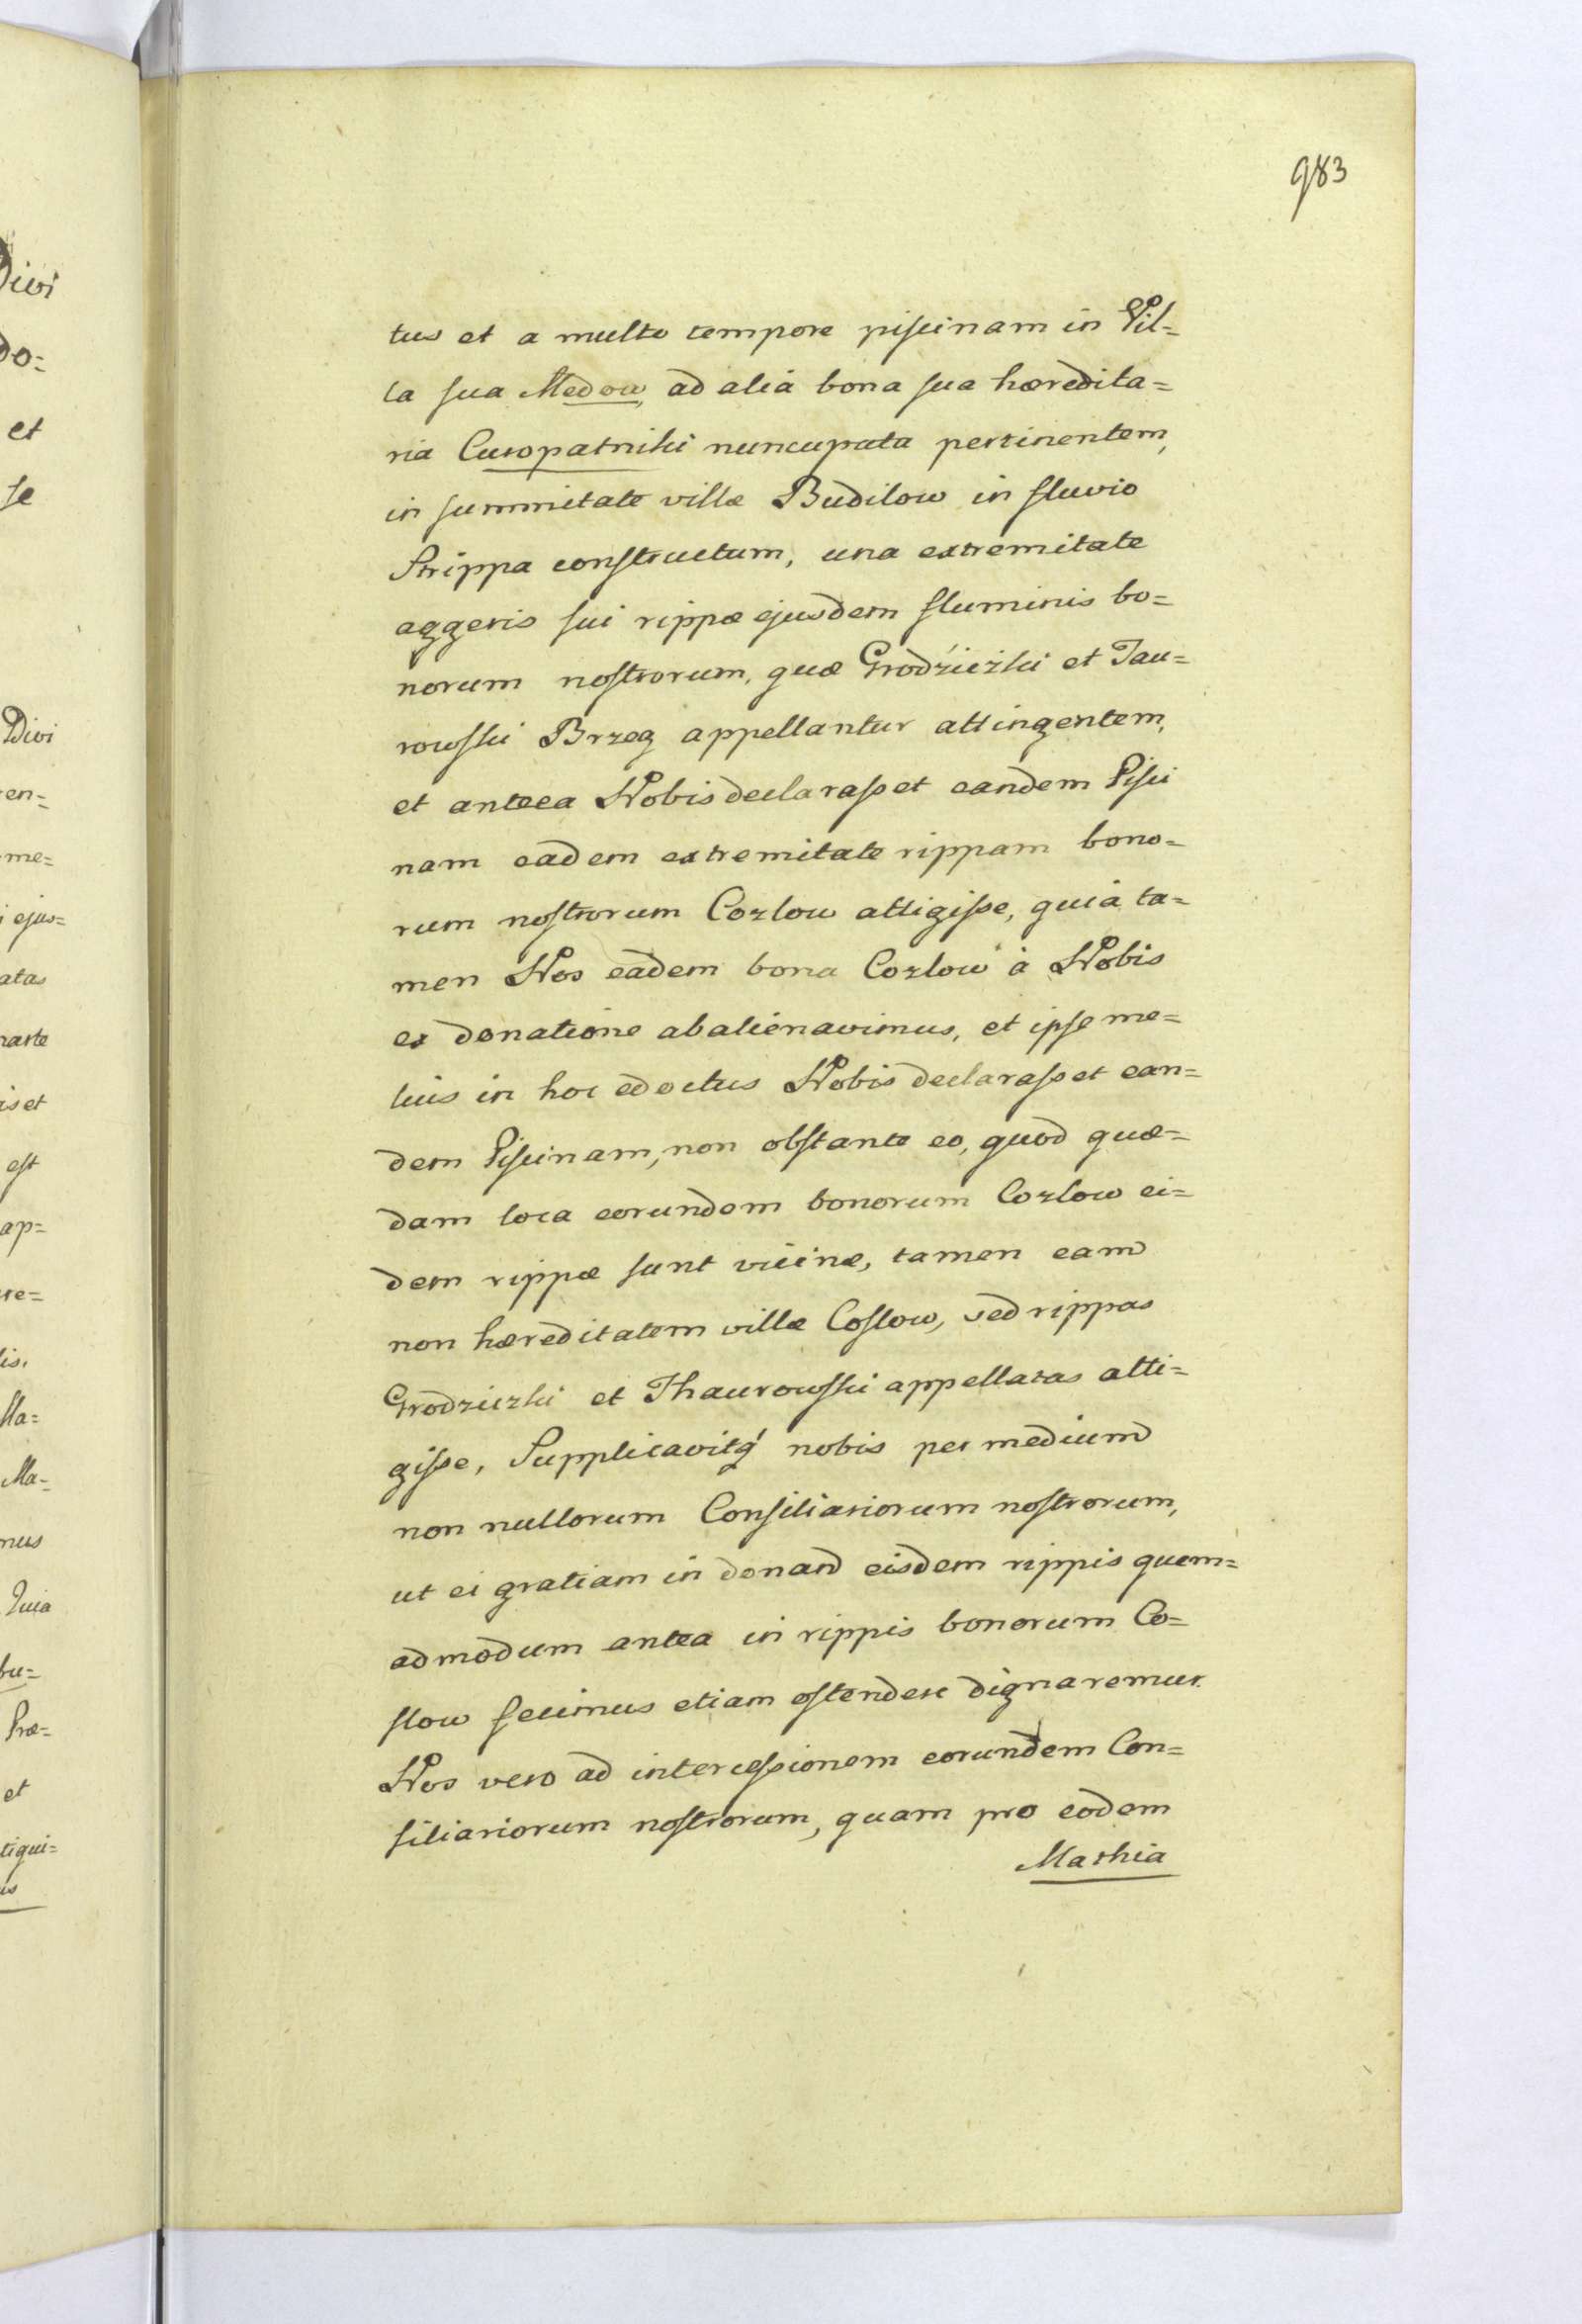 983
tus et a multo tempore piscinam in Vil=
la sua Medow, ad alia bona sua hæredita=
ria Curopatniki nuncupata pertinentem,
in summitate villæ Budilow in fluvio
Strippa constructum, una extremitate
aggeris sui rippæ ejusdem fluminis bo=
norum nostrorum, quæ Grodźiczki et Tau=
rowski Brzeg appellantur attingentem,
et anteea Nobis declarasset eandem Pisci
nam eadem extremitate rippam bono=
rum nostrorum Cozlow attigisse, quia ta=
men Nos eadem bona Cozlow à Nobis
ex donatione abalienavimus, et ipse me=
lius in hoc edoctus Nobis declarasset ean=
dem Piscinam, non obstante eo, quod quæ=
dam loca eorundem bonorum Cozlow ei=
dem rippæ sunt vicinæ, tamen eam
non hæreditatem villæ Coslow, sed rippas
Grodziczki et Thaurowski appellatas atti=
gisse, Supplicavitq' nobis per medium
non nullorum Consiliariorum nostrorum,
ut ei gratiam in donand eisdem rippis quem=
admodum antea in rippis bonorum Co=
slow fecimus etiam ostendere dignaremur.
Nos vero ad intercessionem eorundem Con=
siliariorum nostrorum, quam pro eodem
Mathia
Divi
do:
et
se
Divi
en=
me=
ejus=
atas
parte
is et
est
ap=
re=
lis.
Ma=
nus
Quia
bu=
Præ=
et
tiqui=
us